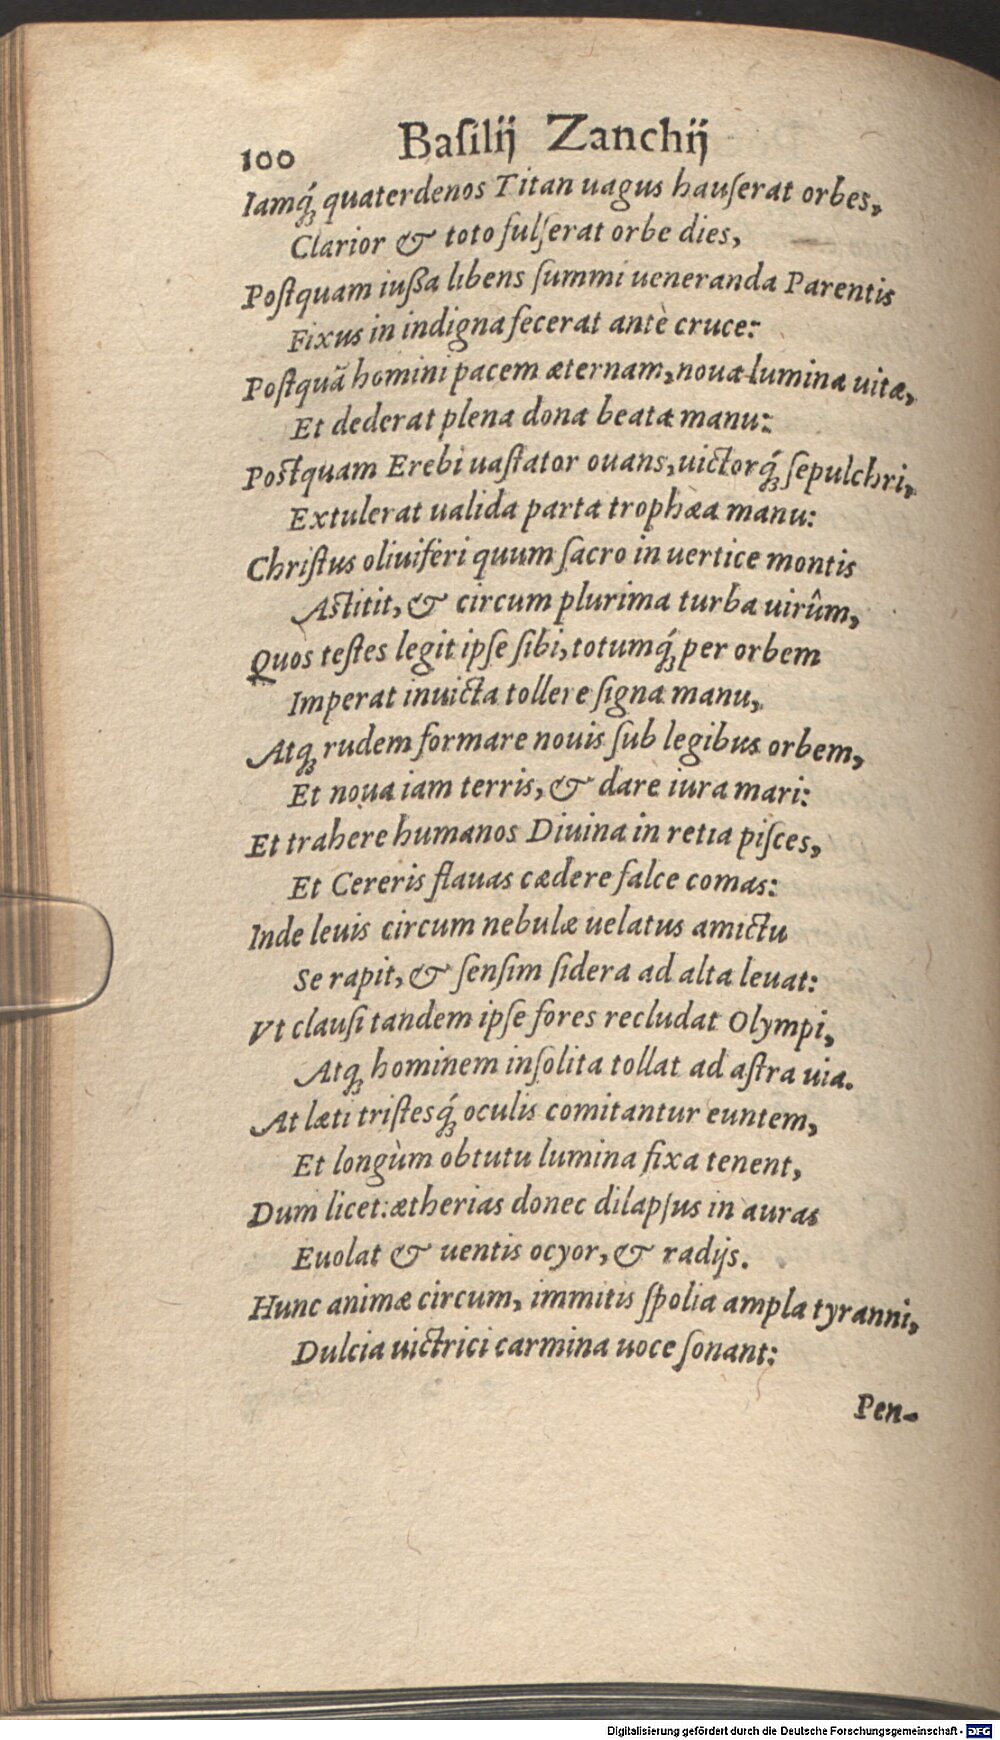 100 Baſilij Zanchij
Iamq́; quaterdenos Titan uagus hauſerat orbes,
Clarior & toto fulſerat orbe dies,
Poſtquam iußa libens ſummi ueneranda Parentis
Fixus in indigna fecerat antè cruce:
Poſtquã homini pacem æternam, noua lumina uitæ,
Et dederat plena dona beata manu:
Poſtquam Erebi uaſtator ouans, uictorq́; ſepulchri,
Extulerat ualida parta trophæa manu:
Chriſtus oliuiferi quum ſacro in uertice montis
Aſtitit, & circum plurima turba uirûm,
Quos teſtes legit ipſe ſibi, totumq́; per orbem
Imperat inuicta tollere ſigna manu,
Atq; rudem formare nouis ſub legibus orbem,
Et noua iam terris, & dare iura mari:
Et trahere humanos Diuina in retia piſces,
Et Cereris flauas cædere falce comas:
Inde leuis circum nebulæ uelatus amictu
Se rapit, & ſenſim ſidera ad alta leuat:
Vt clauſi tandem ipſe fores recludat Olympi,
Atq; hominem inſolita tollat ad aſtra uia.
At læti triſtesq́; oculis comitantur euntem,
Et longùm obtutu lumina fixa tenent,
Dum licet: ætherias donec dilapſus in auras
Euolat & uentis ocyor, & radijs.
Hunc animæ circum, immitis ſpolia ampla tyranni,
Dulcia uictrici carmina uoce ſonant:
Pen-
Digitalisierung gefördert durch die Deutsche Forschungsgemeinschaft - DFG